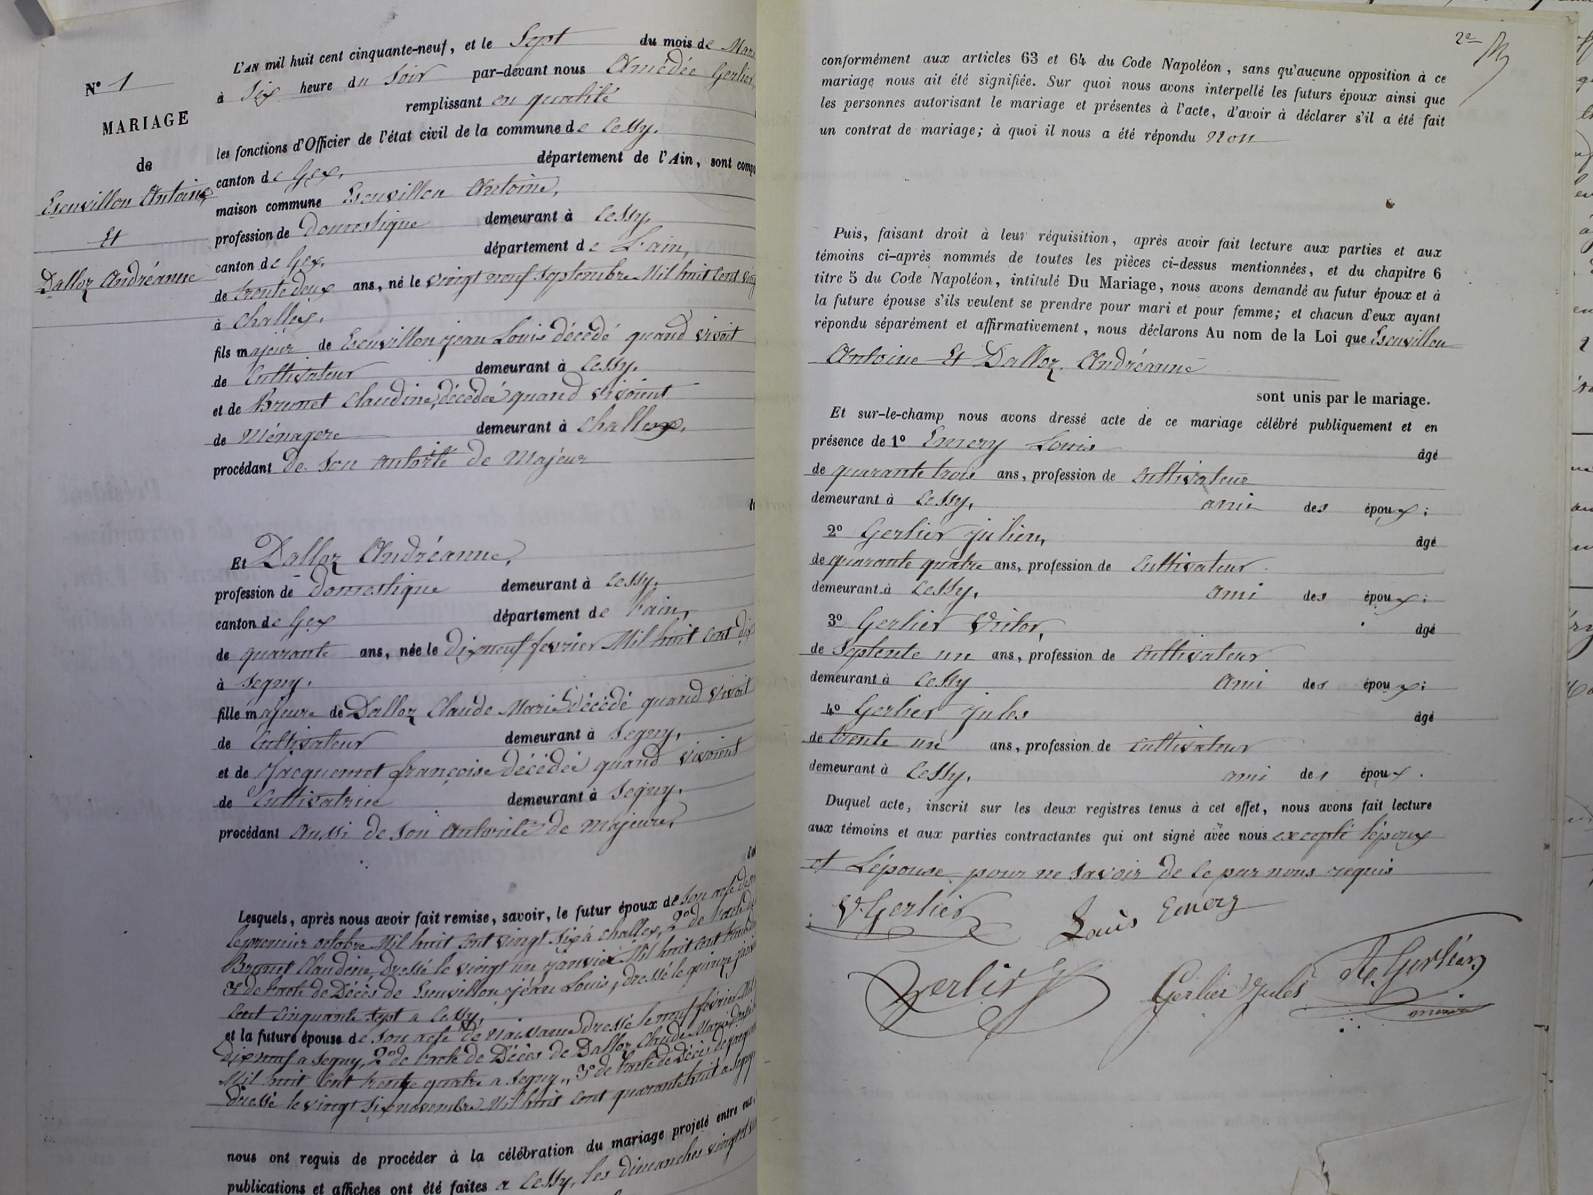 N° 1
MARIAGE
de
Esenvillon Antoine
Et
Dalloz Andréanne
L'AN mil huit cent cinquante-neuf, et le Sept du mois de Mars
à Six heure du Soir par-devant nous Amédée Gerlier,
remplissant en qualité
les fonctions d'Officier de l'état civil de la commune de Cessy.
canton de Gex. département de l'Ain, sont comp
maison commune Esenvillon Antoine,
profession de Domestique demeurant à Cessy,
canton de Gex. département de L'ain,
de trente deux ans, né le vingt neuf Septembre Mil huit Cent ving
à Challex.
fils majeur de Esenvillon jean Louis décédé quand vivoit
de Cultivateur demeurant à Cessy.
et de Brunet Claudine, décédée quand vivoint
de Ménagere demeurant à Challex,
procédant de Son autorté de Majeur
Et Dalloz Andréanne,
profession de Domestique demeurant à Cessy,
canton de Gex département de L'ain,
de quarante ans, née le dix neuf fevrier Mil huit Cent dix
à Segny.
fille majeure de Dalloz Claude Marie Décédé quand Vivoit
de Cultivateur demeurant à Segny,
et de Jacquemet françoise décédée quand vivoint
de Cultivatrice demeurant à Segny.
procédant Aussi de Son Autorité de Majeure,
Lesquels, après nous avoir fait remise, savoir, le futur époux de Son acte de
Le premier octobre Mil huit Cent vingt Six à Challex, 2° de l'acte de
Brunet Claudine, dressé le vingt un janvier Mil huit Cent
3° de l'acte de Décès de Esenvillon Jean Louis, dressé le quinze
Cent Cinquante Sept a Cessy.
et la future épouse de Son acte de Naissance dressé le neuf février Mil
Dix neuf a Segny, 2° de l'acte de Décès de Dalloz Claude Marie
Mil huit Cent trente quatre a Segny., 3° de l'acte de Décès de
dressé le vingt Six novembre Mil huit Cent quarante huit a Segny
nous ont requis de procéder à la célébration du mariage projeté entre eux
publications et affiches ont été faites a Cessy, les dimanches vingt
2e
conformément aux articles 63 et 64 du Code Napoléon, sans qu'aucune opposition à ce
mariage nous ait été signifiée. Sur quoi nous avons interpellé les futurs époux ainsi que
les personnes autorisant le mariage et présentes à l'acte, d'avoir à déclarer s'il a été fait
un contrat de mariage; à quoi il nous a été répondu Non
Puis, faisant droit à leur réquisition, après avoir fait lecture aux parties et aux
témoins ci-après nommés de toutes les pièces ci-dessus mentionnées, et du chapitre 6
titre 5 du Code Napoléon, intitulé Du Mariage, nous avons demandé au futur époux et à
la future épouse s'ils veulent se prendre pour mari et pour femme; et chacun d'eux ayant
répondu séparément et affirmativement, nous déclarons Au nom de la Loi que Esenvillon
Antoine Et Dalloz Andréanne
sont unis par le mariage.
Et sur-le-champ nous avons dressé acte de ce mariage célébré publiquement et en
présence de 1° Emery Louis âgé
de quarante trois ans, profession de Cultivateur
demeurant à Cessy, ami des époux;
2° Gerlier Julien, âgé
de quarante quatre ans, profession de Cultivateur
demeurant à Cessy, ami des époux;
3° Gerlier Victor, âgé
de Septente un ans, profession de Cultivateur
demeurant à Cessy ami des époux;
4° Gerlier Jules âgé
de trente un ans, profession de Cultivateur
demeurant à Cessy, ami des époux.
Duquel acte, inscrit sur les deux registres tenus à cet effet, nous avons fait lecture
aux témoins et aux parties contractantes qui ont signé avec nous excepté l'époux
et L'épouse pour ne Savoir de ce par nous requis
V. Gerlier Louis Emery
Gerlier J Gerlier Jules A. Gerlier,
maire